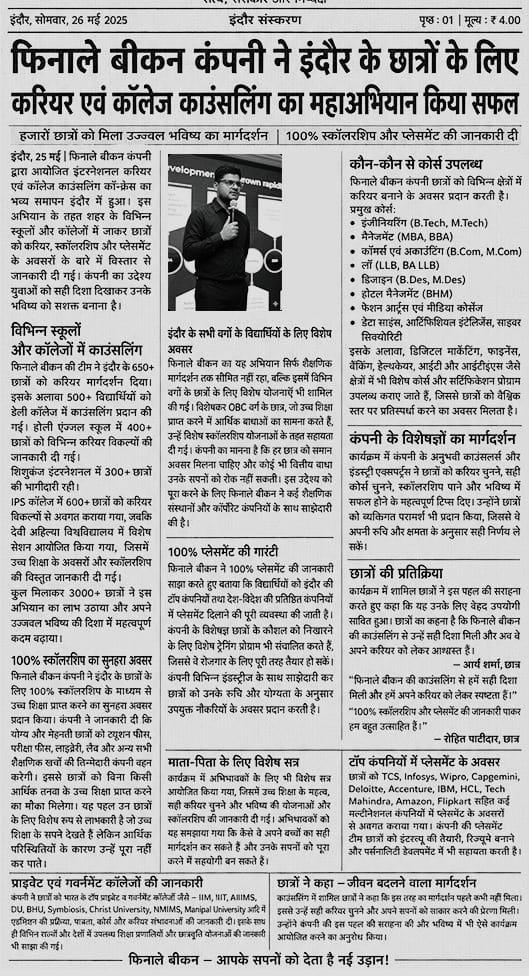 इंदौर, सोमवार, 26 मई 2025
इंदौर संस्करण
पृष्ठ : 01 | मूल्य : ₹ 4.00
फिनाले बीकन कंपनी ने इंदौर के छात्रों के लिए
करियर एवं कॉलेज काउंसलिंग का महाअभियान किया सफल
हजारों छात्रों को मिला उज्ज्वल भविष्य का मार्गदर्शन | 100% स्कॉलरशिप और प्लेसमेंट की जानकारी दी
इंदौर, 25 मई | फिनाले बीकन कंपनी
द्वारा आयोजित इंटरनेशनल करियर
एवं कॉलेज काउंसलिंग कॉन्फ्रेंस का
भव्य समापन इंदौर में हुआ। इस
अभियान के तहत शहर के विभिन्न
स्कूलों और कॉलेजों में जाकर छात्रों
को करियर, स्कॉलरशिप और प्लेसमेंट
के अवसरों के बारे में विस्तार से
जानकारी दी गई। कंपनी का उद्देश्य
युवाओं को सही दिशा दिखाकर उनके
भविष्य को सशक्त बनाना है।
विभिन्न स्कूलों
और कॉलेजों में काउंसलिंग
फिनाले बीकन की टीम ने इंदौर के 650+
छात्रों को करियर मार्गदर्शन दिया।
इसके अलावा 500+ विद्यार्थियों को
डेली कॉलेज में काउंसलिंग प्रदान की
गई। होली एंज्जल स्कूल में 400+
छात्रों को विभिन्न करियर विकल्पों की
जानकारी दी गई।
शिशुकंज इंटरनेशनल में 300+ छात्रों
की भागीदारी रही।
IPS कॉलेज में 600+ छात्रों को करियर
विकल्पों से अवगत कराया गया, जबकि
देवी अहिल्या विश्वविद्यालय में विशेष
सेशन आयोजित किया गया, जिसमें
उच्च शिक्षा के अवसरों और स्कॉलरशिप
की विस्तृत जानकारी दी गई।
कुल मिलाकर 3000+ छात्रों ने इस
अभियान का लाभ उठाया और अपने
उज्जवल भविष्य की दिशा में महत्वपूर्ण
कदम बढ़ाया।
100% स्कॉलरशिप का सुनहरा अवसर
फिनाले बीकन कंपनी ने इंदौर के छात्रों के
लिए 100% स्कॉलरशिप के माध्यम से
उच्च शिक्षा प्राप्त करने का सुनहरा अवसर
प्रदान किया। कंपनी ने जानकारी दी कि
योग्य और मेहनती छात्रों को ट्यूशन फीस,
परीक्षा फीस, लाइब्रेरी, लैब और अन्य सभी
शैक्षणिक खर्चों की जिम्मेदारी कंपनी वहन
करेगी। इससे छात्रों को बिना किसी
आर्थिक तनाव के उच्च शिक्षा प्राप्त करने
का मौका मिलेगा। यह पहल उन छात्रों
के लिए विशेष रूप से लाभकारी है जो उच्च
शिक्षा के सपने देखते हैं लेकिन आर्थिक
परिस्थितियों के कारण उन्हें पूरा नहीं
कर पाते।
इंदौर के सभी वर्गों के विद्यार्थियों के लिए विशेष
अवसर
फिनाले बीकन का यह अभियान सिर्फ शैक्षणिक
मार्गदर्शन तक सीमित नहीं रहा, बल्कि इसमें विभिन
वर्गों के छात्रों के लिए विशेष योजनाएँ भी शामिल
की गई। विशेषकर OBC वर्ग के छात्र, जो उच्च शिक्षा
प्राप्त करने में आर्थिक बाधाओं का सामना करते हैं,
उन्हें विशेष स्कॉलरशिप योजनाओं के तहत सहायता
दी गई। कंपनी का मानना है कि हर छात्र को समान
अवसर मिलना चाहिए और कोई भी वित्तीय बाधा
उनके सपनों को रोक नहीं सकती। इस उद्देश्य को
पूरा करने के लिए फिनाले बीकन ने कई शैक्षणिक
संस्थानों और कॉर्पोरेट कंपनियों के साथ साझेदारी
की है।
100% प्लेसमेंट की गारंटी
फिनाले बीकन ने 100% प्लेसमेंट की जानकारी
साझा करते हुए बताया कि विद्यार्थियों को इंदौर की
टॉप कंपनियों तथा देश-विदेश की प्रतिष्ठित कंपनियों
में प्लेसमेंट दिलाने की पूरी व्यवस्था की जाती है।
कंपनी के विशेषज्ञ छात्रों के कौशल को निखारने
के लिए विशेष ट्रेनिंग प्रोग्राम भी संचालित करते हैं,
जिससे वे रोजगार के लिए पूरी तरह तैयार हो सकें।
कंपनी विभिन्न इंडस्ट्रीज के साथ साझेदारी कर
छात्रों को उनके रुचि और योग्यता के अनुसार
उपयुक्त नौकरियों के अवसर प्रदान करती है।
माता-पिता के लिए विशेष सत्र
कार्यक्रम में अभिभावकों के लिए भी विशेष सत्र
आयोजित किया गया, जिसमें उच्च शिक्षा के महत्व,
सही करियर चुनने और भविष्य की योजनाओं और
स्कॉलरशिप की जानकारी दी गई। अभिभावकों को
यह समझाया गया कि कैसे वे अपने बच्चों का सही
मार्गदर्शन कर सकते हैं और उनके सपनों को पूरा
करने में सहयोगी बन सकते हैं।
कौन-कौन से कोर्स उपलब्ध
फिनाले बीकन कंपनी छात्रों को विभिन्न क्षेत्रों में
करियर बनाने के अवसर प्रदान करती है।
प्रमुख कोर्स:
• इंजीनियरिंग (B.Tech, M.Tech)
• मैनेजमेंट (MBA, BBA)
• कॉमर्स एवं अकाउंटिंग (B.Com, M.Com)
• लॉ (LLB, BA LLB)
• डिजाइन (B.Des, M.Des)
• होटल मैनेजमेंट (BHM)
• फैशन आर्ट्स एवं मीडिया कोर्सेज
• डेटा साइंस, आर्टिफिशियल इंटेलिजेंस, साइबर
सिक्योरिटी
इसके अलावा, डिजिटल मार्केटिंग, फाइनेंस,
बैंकिंग, हेल्थकेयर, आईटी और आईटीइएस जैसे
क्षेत्रों में भी विशेष कोर्स और सर्टिफिकेशन प्रोग्राम
उपलब्ध कराए जाते हैं, जिससे छात्रों को वैश्विक
स्तर पर प्रतिस्पर्धा करने का अवसर मिलता है।
कंपनी के विशेषज्ञों का मार्गदर्शन
कार्यक्रम में कंपनी के अनुभवी काउंसलर्स और
इंडस्ट्री एक्सपर्ट्स ने छात्रों को करियर चुनने, सही
कोर्स चुनने, स्कॉलरशिप पाने और भविष्य में
सफल होने के महत्वपूर्ण टिप्स दिए। उन्होंने छात्रों
को व्यक्तिगत परामर्श भी प्रदान किया, जिससे वे
अपनी रुचि और क्षमता के अनुसार सही निर्णय ले
सकें।
छात्रों की प्रतिक्रिया
कार्यक्रम में शामिल छात्रों ने इस पहल की सराहना
करते हुए कहा कि यह उनके लिए बेहद उपयोगी
साबित हुआ। छात्रों का कहना है कि फिनाले बीकन
की काउंसलिंग से उन्हें सही दिशा मिली और अब वे
अपने करियर को लेकर आश्वस्त हैं।
– आर्य शर्मा, छात्र
“फिनाले बीकन की काउंसलिंग से हमें सही दिशा
मिली और हमें अपने करियर को लेकर स्पष्टता हैं।”
“100% स्कॉलरशिप और प्लेसमेंट की जानकारी पाकर
हम बहुत उत्साहित हैं।”
– रोहित पाटीदार, छात्र
टॉप कंपनियों में प्लेसमेंट के अवसर
छात्रों को TCS, Infosys, Wipro, Capgemini,
Deloitte, Accenture, IBM, HCL, Tech
Mahindra, Amazon, Flipkart सहित कई
मल्टीनेशनल कंपनियों में प्लेसमेंट के अवसरों
से अवगत कराया गया। कंपनी की प्लेसमेंट
टीम छात्रों को इंटरव्यू की तैयारी, रिज्यूमे बनाने
और पर्सनालिटी डेवलपमेंट में भी सहायता करती है।
प्राइवेट एवं गवर्नमेंट कॉलेजों की जानकारी
कंपनी ने छात्रों को भारत के टॉप प्राइवेट व गवर्नमेंट कॉलेजों जैसे – IIM, IIIT, AIIIMS,
DU, BHU, Symbiosis, Christ University, NMIMS, Manipal University आदि में
एडमिशन की प्रक्रिया, पात्रता, कोर्स और करियर संभावनाओं की जानकारी दी। इसके साथ
ही विभिन्न राज्यों और देशों में उपलब्ध शिक्षा प्रणालियों और छात्रवृत्ति योजनाओं की जानकारी
भी साझा की गई।
छात्रों ने कहा – जीवन बदलने वाला मार्गदर्शन
काउंसलिंग में शामिल छात्रों ने कहा कि इस तरह का मार्गदर्शन पहले कभी नहीं मिला।
इससे उन्हें सही करियर चुनने और अपने सपनों को साकार करने की प्रेरणा मिली।
उन्होंने कंपनी की इस पहल की सराहना की और भविष्य में भी ऐसे कार्यक्रम
आयोजित करने का अनुरोध किया।
फिनाले बीकन – आपके सपनों को देता है नई उड़ान!